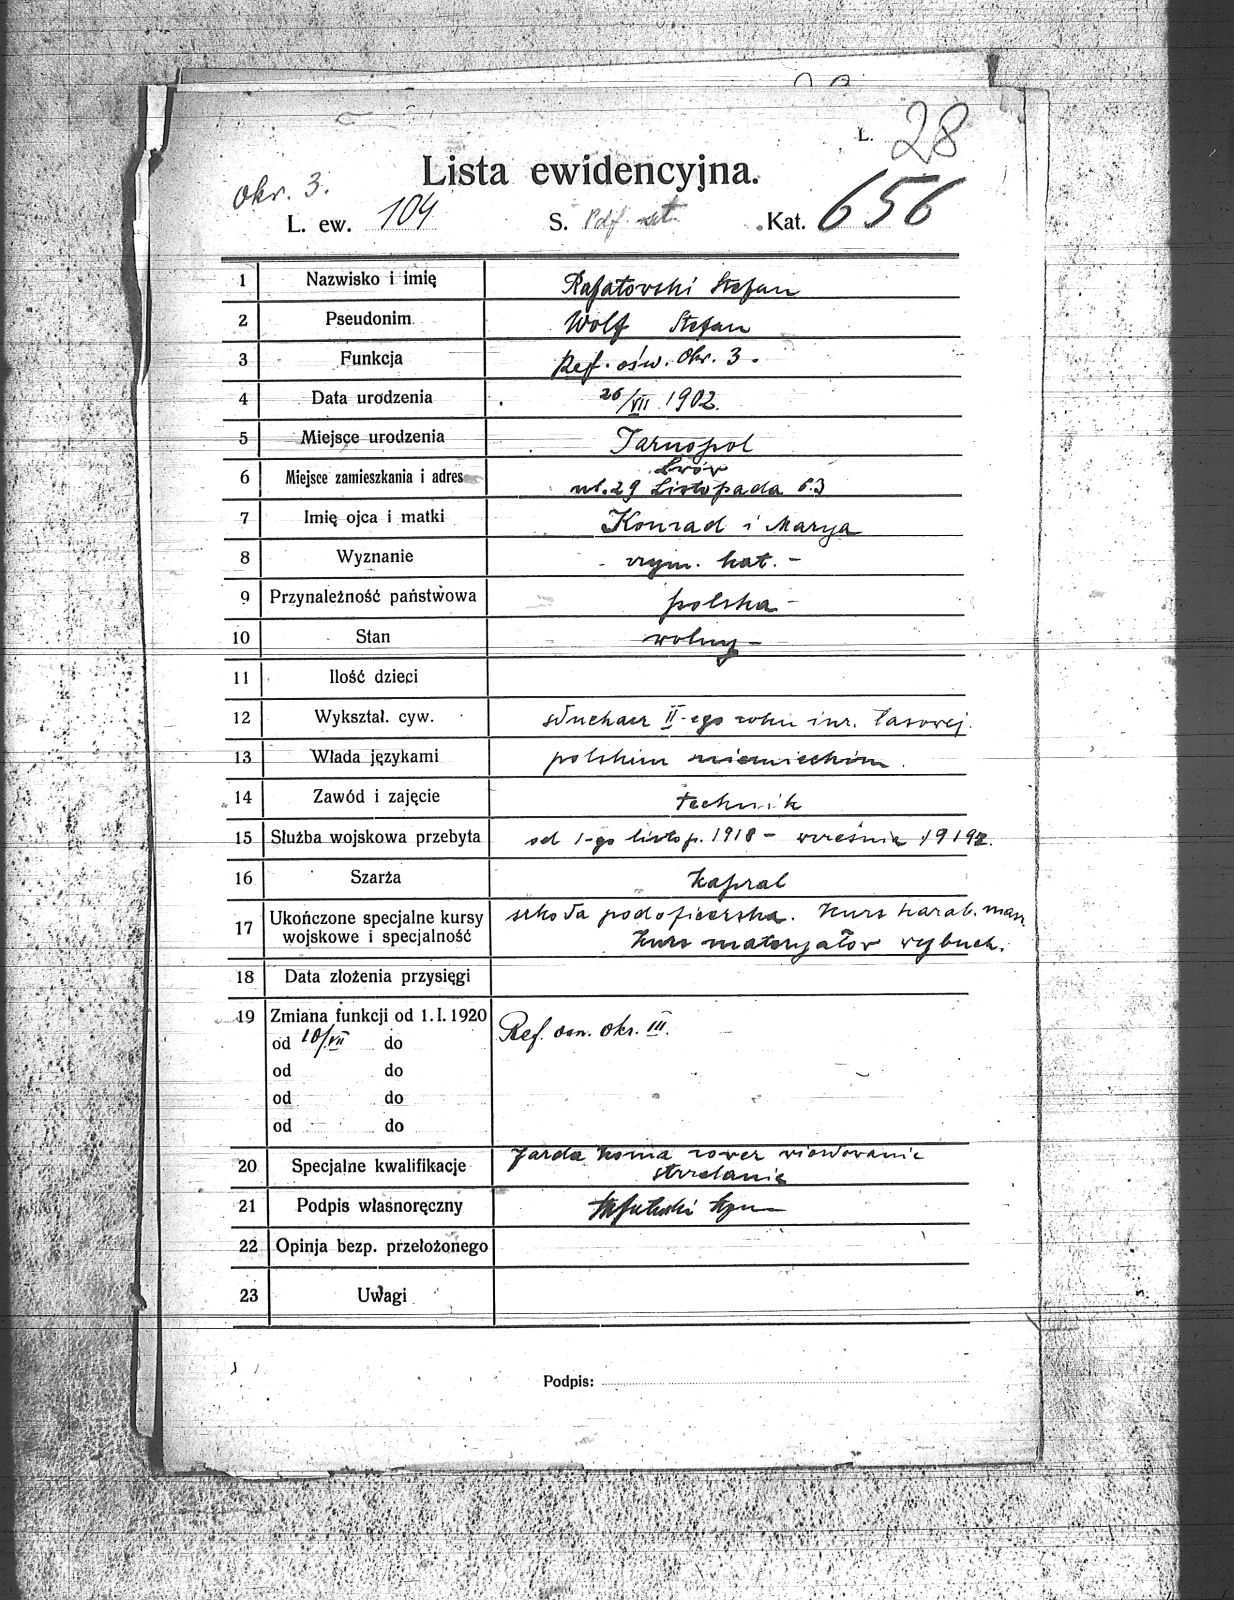 L. 28
Lista ewidencyjna.
okr. 3.
L. ew. 104 S. Kat. 656
1 Nazwisko i imię Rafatovski Stefan
2 Pseudonim Wolf Stefan
3 Funkcja Ref. ośw. Okr. 3.
4 Data urodzenia 26/VII 1902.
5 Miejsce urodzenia Tarnopol
6 Miejsce zamieszkania i adres Lwów
ul. 29 Listopada
7 Imię ojca i matki Konrad i Marya
8 Wyznanie rzym. kat. -
9 Przynależność państwowa polska -
10 Stan wolny -
11 Ilość dzieci
12 Wykształ. cyw. słuchacz II-ego roku inż. lasowej.
13 Włada językami polskim niemieckim.
14 Zawód i zajęcie technik
15 Służba wojskowa przebyta od 1-go listop. 1918 - września
16 Szarża Kapral
17 Ukończone specjalne kursy wojskowe i specjalność szkoła podoficerska. Kurs karab. masz.
Kurs materyałów wybuch.
18 Data złożenia przysięgi
19 Zmiana funkcji od 1. I. 1920
od 10/VII do Ref. osw. okr. III.
od do
od do
od do
20 Specjalne kwalifikacje Jazda konna rower wiosłowanie
strzelanie
21 Podpis własnoręczny
22 Opinja bezp. przełożonego
23 Uwagi
Podpis: